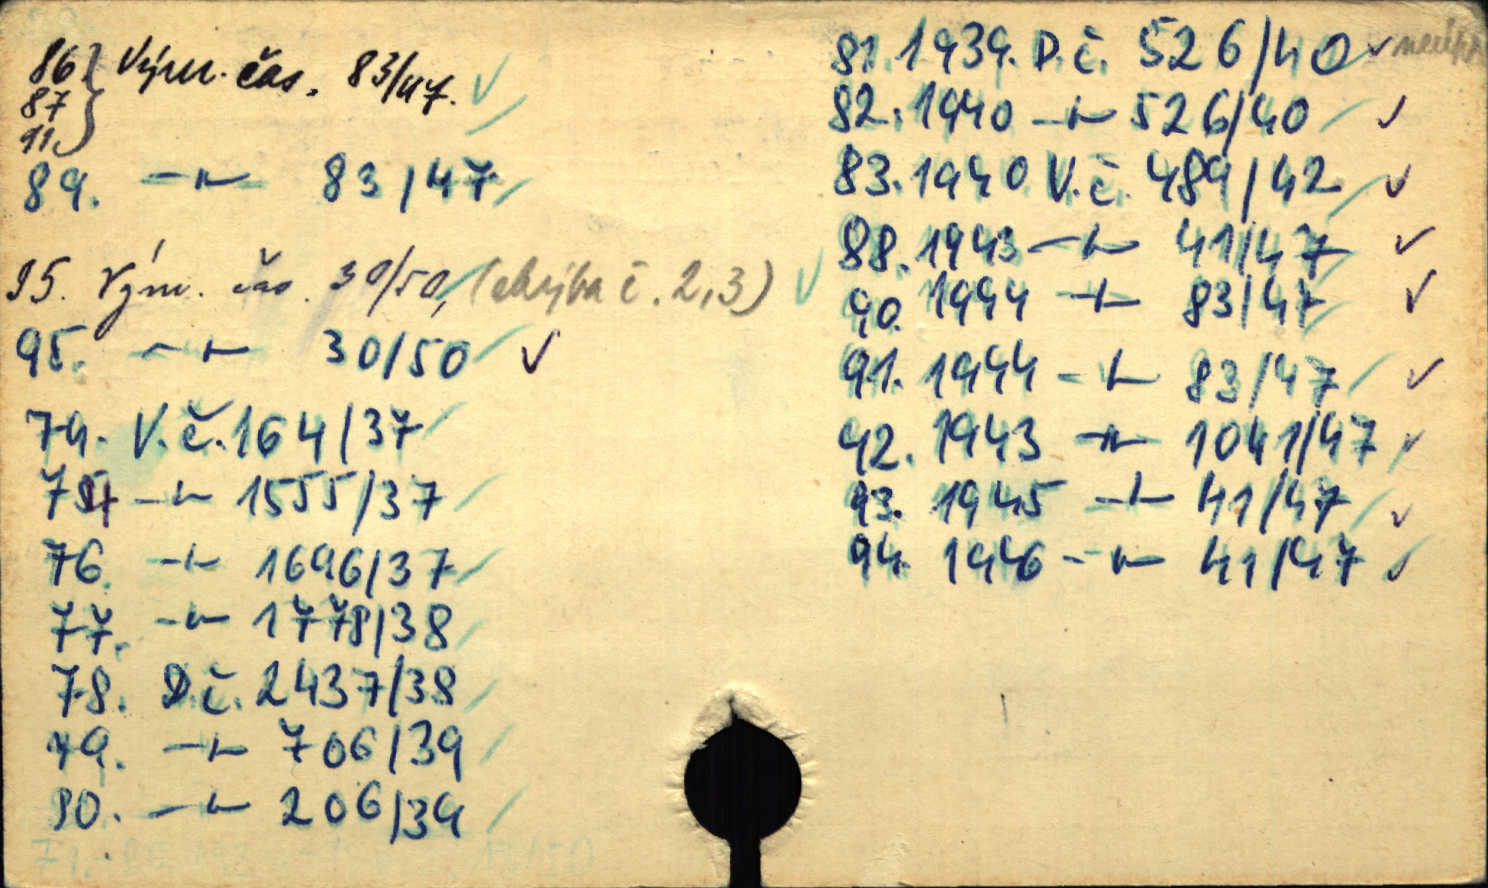 86 } Vým. čas. 83/47.
87
11
89. —"— 83/47
95. Vým. čas. 30/50, (chýba č. 2,3)
95. —"— 30/50
74. V.č. 164/37
75. —"— 1555/37
76. —"— 1696/37
77. —"— 1778/38
78. D.č. 2437/38
79. —"— 706/39
80. —"— 206/39
81. 1939. D.č. 526/40
82. 1940 —"— 526/40
83. 1940 V.č. 489/42
88. 1943 —"— 41/47
90. 1944 —"— 83/47
91. 1944 —"— 83/47
92. 1943 —"— 1041/47
93. 1945 —"— 41/47
94. 1946 —"— 41/47